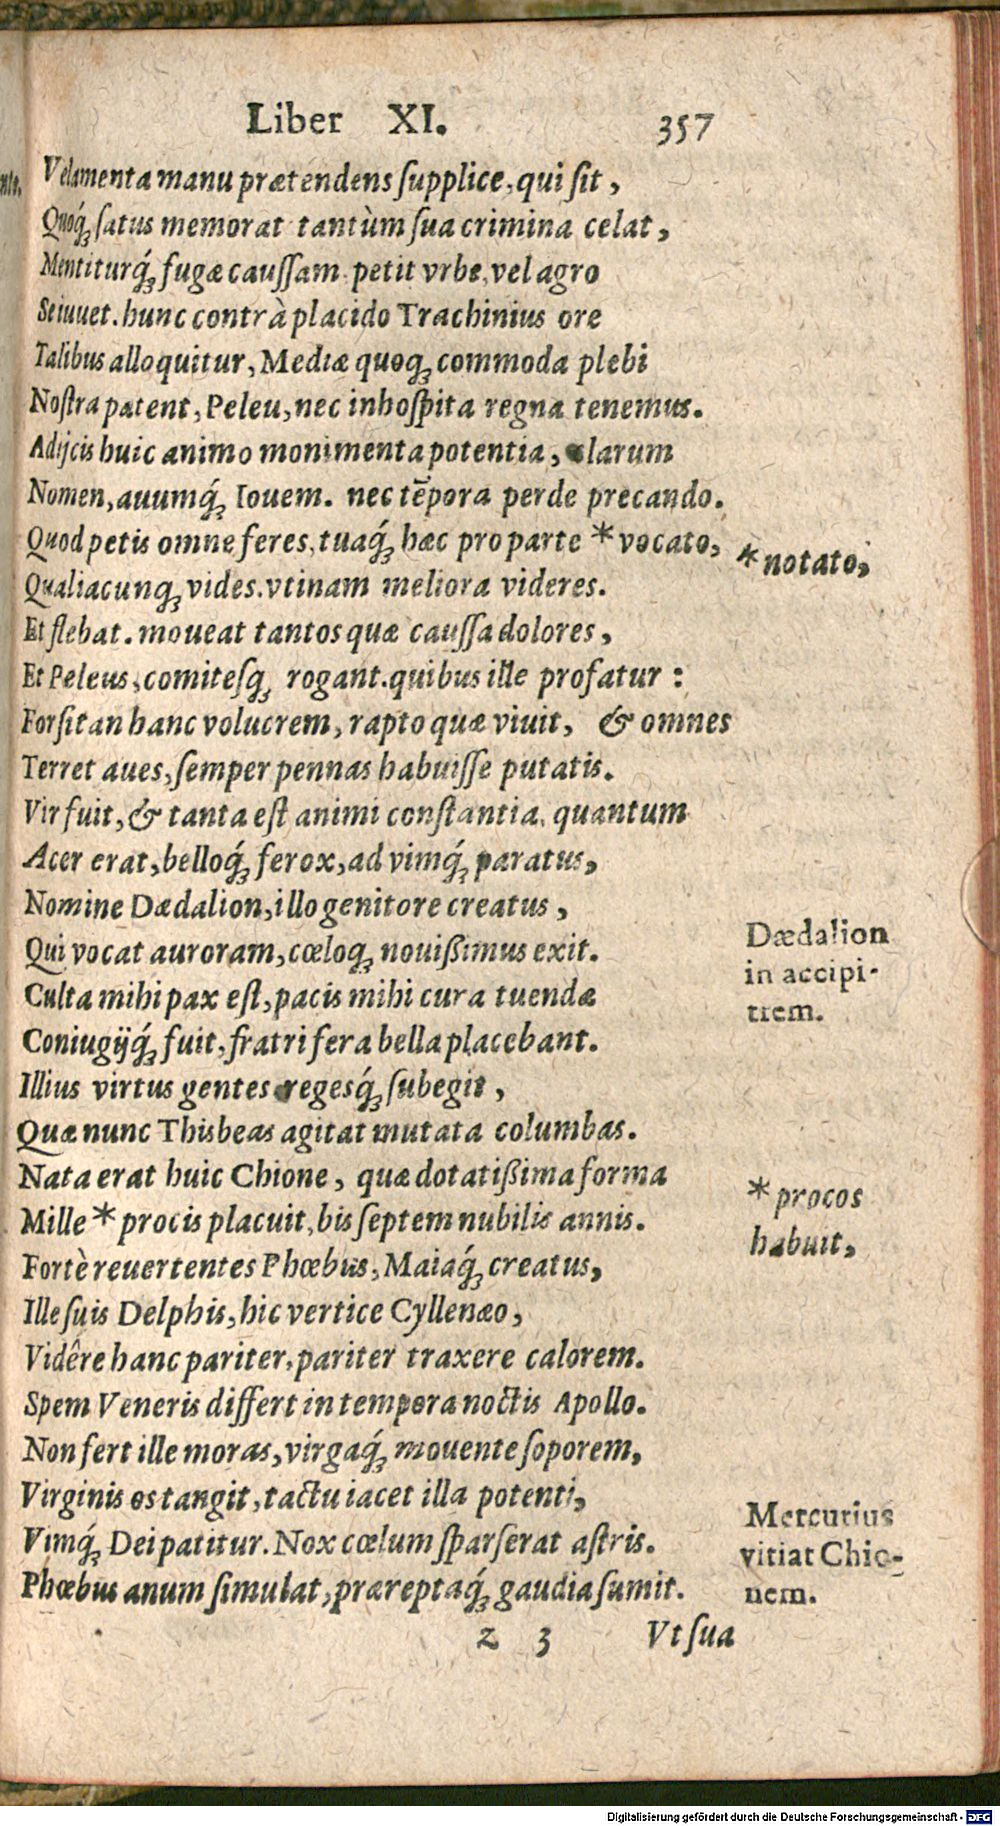 Liber XI. 357
Velamenta manu prætendens ſupplice, qui ſit,
Quoq́; ſatus memorat tantùm ſua crimina celat,
Mentiturq́; fugæ cauſſam. petit vrbe, vel agro
Se iuuet. hunc contrà placido Trachinius ore
Talibus alloquitur, Mediæ quoq; commoda plebi
Noſtra patent, Peleu, nec inhoſpita regna tenemus.
Adijcis huic animo monimenta potentia, clarum
Nomen, auumq́; Iouem. nec tēpora perde precando.
Quod petis omne feres, tuaq́; hæc pro parte * vocato,
* notato,
Qualiacunq; vides. vtinam meliora videres.
Et flebat. moueat tantos quæ cauſſa dolores,
Et Peleus, comiteſq; rogant. quibus ille profatur:
Forſitan hanc volucrem, rapto quæ viuit, & omnes
Terret aues, ſemper pennas habuiſſe putatis.
Vir fuit, & tanta eſt animi conſtantia, quantum
Acer erat, belloq́; ferox, ad vimq́; paratus,
Nomine Dædalion, illo genitore creatus,
Qui vocat auroram, cœloq; nouißimus exit.
Dædalion
in accipi-
trem.
Culta mihi pax eſt, pacis mihi cura tuendæ
Coniugijq́; fuit, fratri fera bella placebant.
Illius virtus gentes regesq́; ſubegit,
Quæ nunc Thisbeas agitat mutata columbas.
Nata erat huic Chione, quæ dotatißima forma
Mille * procis placuit, bis ſeptem nubilis annis.
* procos
habuit,
Fortè reuertentes Phœbus, Maiaq́; creatus,
Ille ſuis Delphis, hic vertice Cyllenæo,
Vidêre hanc pariter, pariter traxere calorem.
Spem Veneris differt in tempora noctis Apollo.
Non fert ille moras, virgaq́; mouente ſoporem,
Virginis os tangit, tactu iacet illa potenti,
Vimq́; Dei patitur. Nox cœlum ſparſerat aſtris.
Phœbus anum ſimulat, præreptaq́; gaudia ſumit.
Mercurius
vitiat Chio-
nem.
z 3 Vt ſua
Digitalisierung gefördert durch die Deutsche Forschungsgemeinschaft - DFG